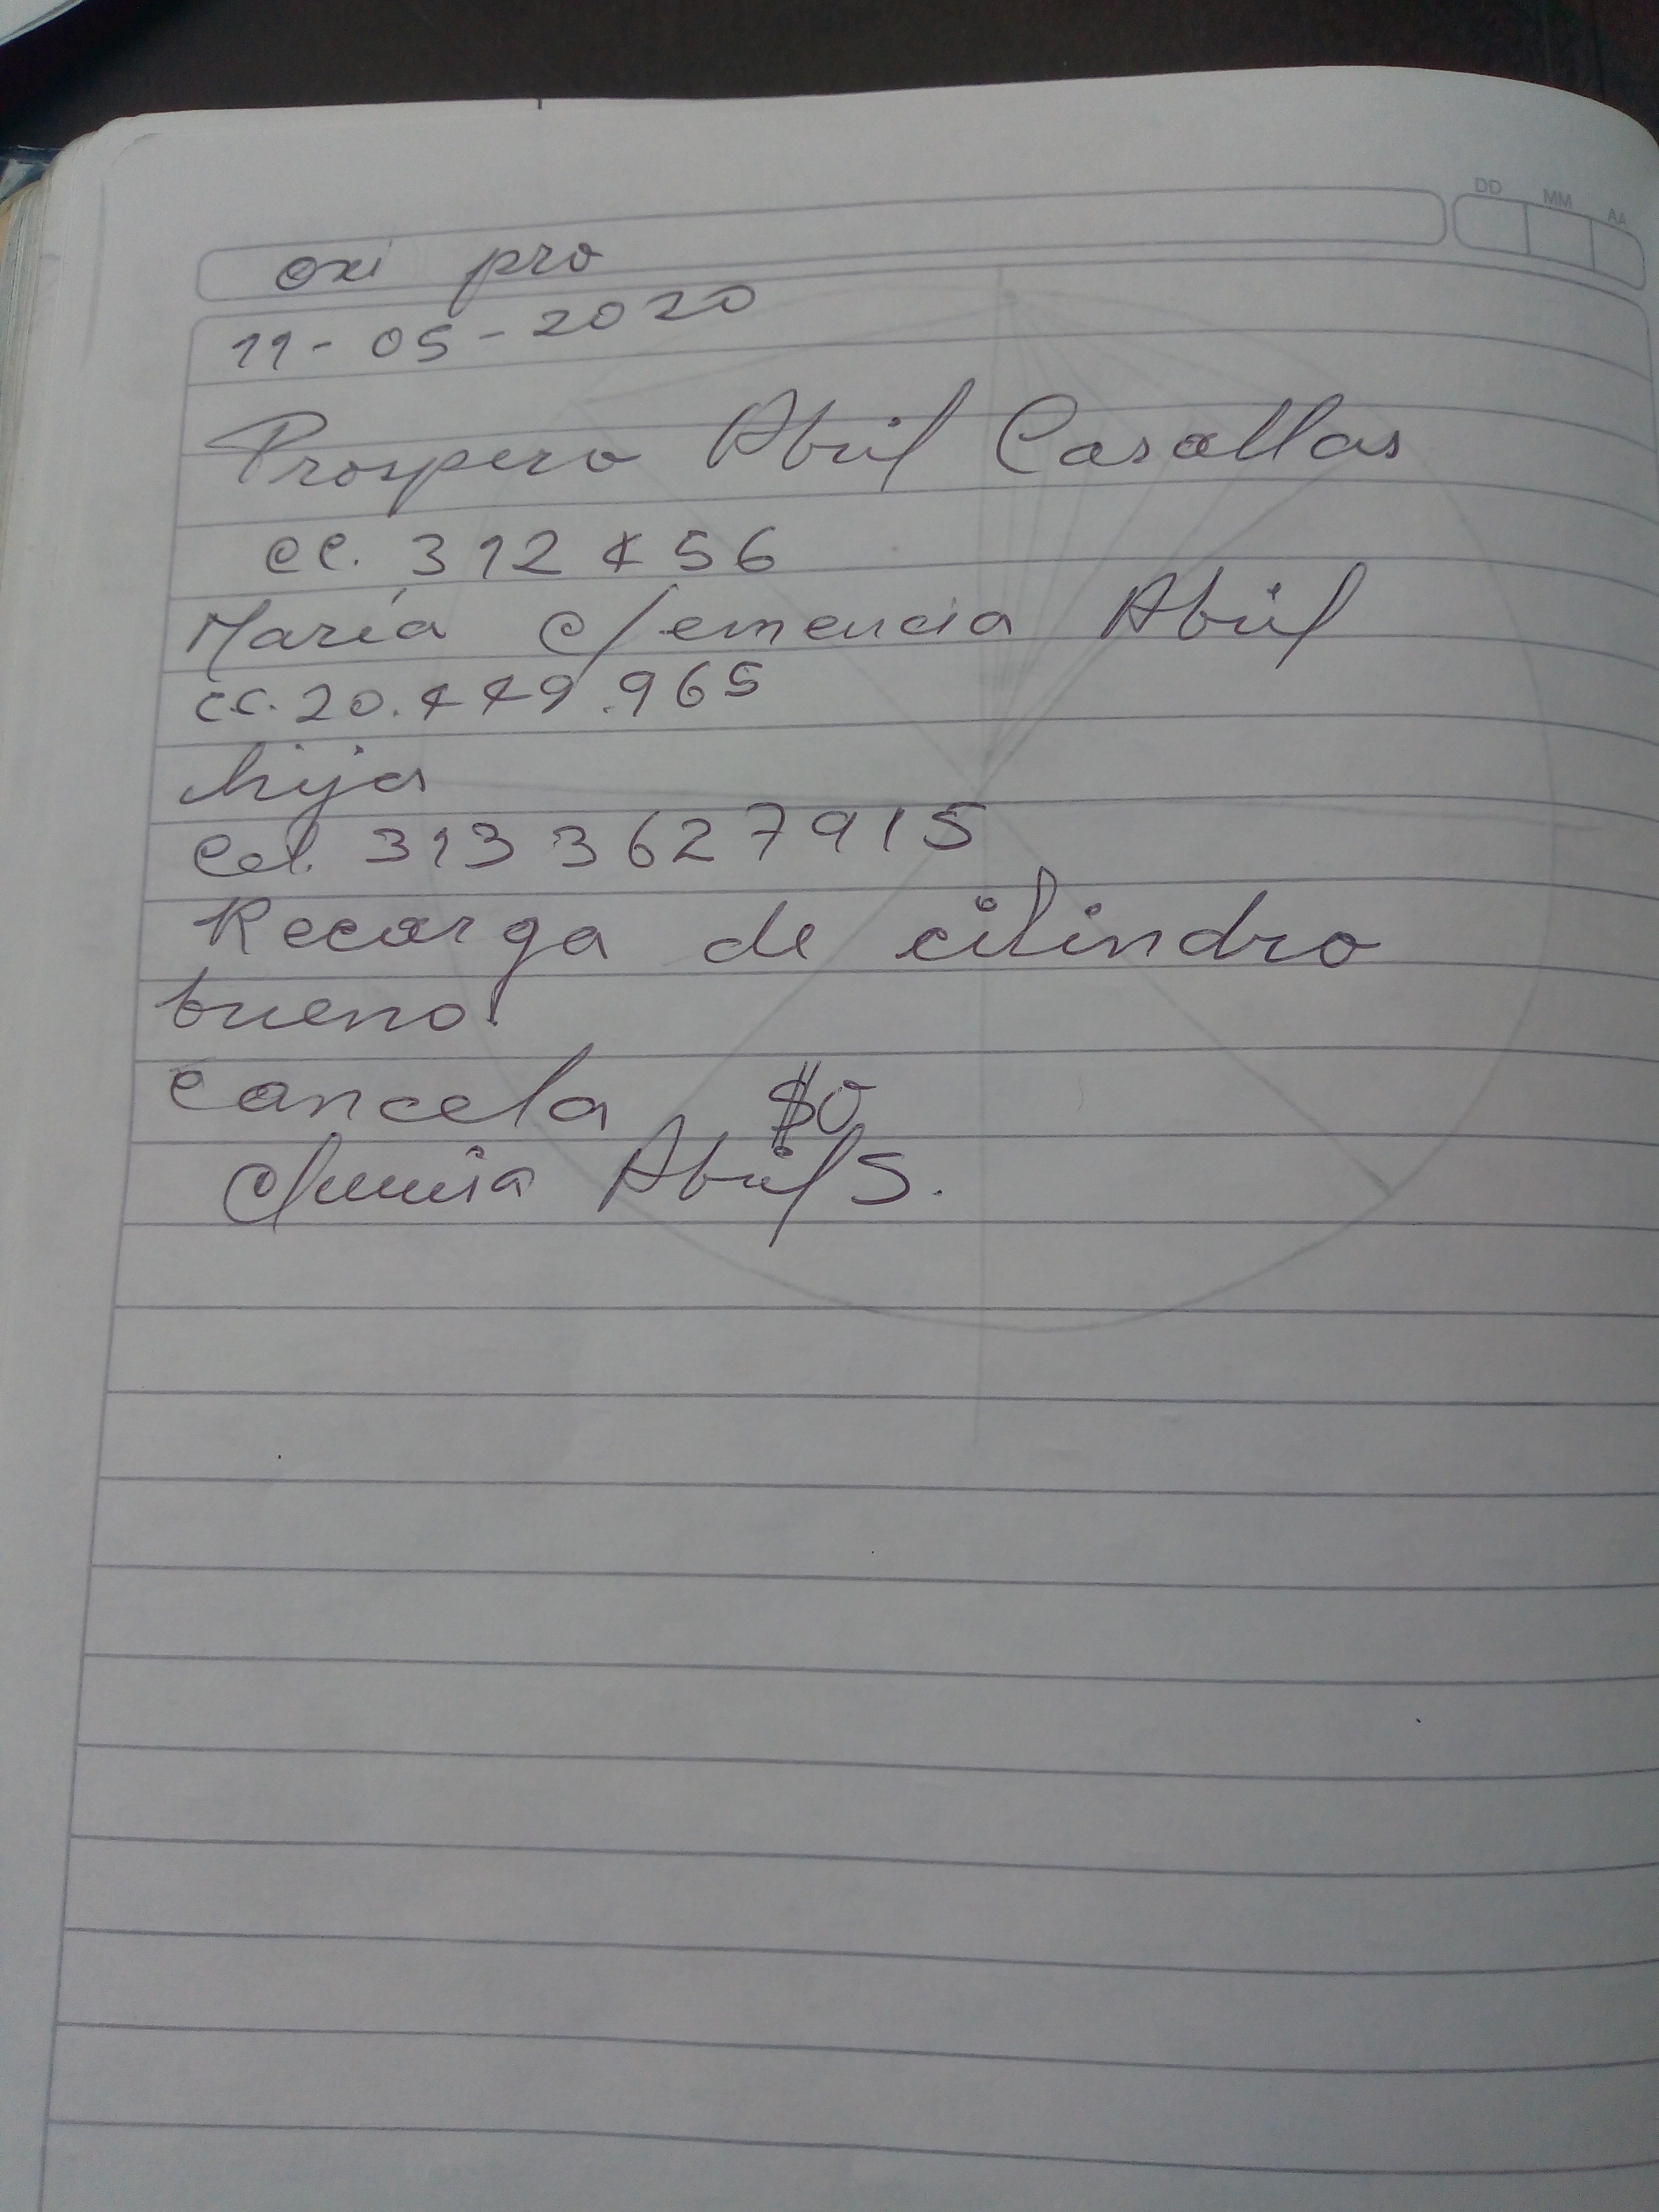 DD MM AA
oxi pro
11-05-2020
Prospero Abril Casallas
cc. 312456
María Clemencia Abril
cc. 20.449.965
hija
Cel. 313 3627915
Recarga de cilindro
bueno.
Cancela $0
Clemencia Abril S.